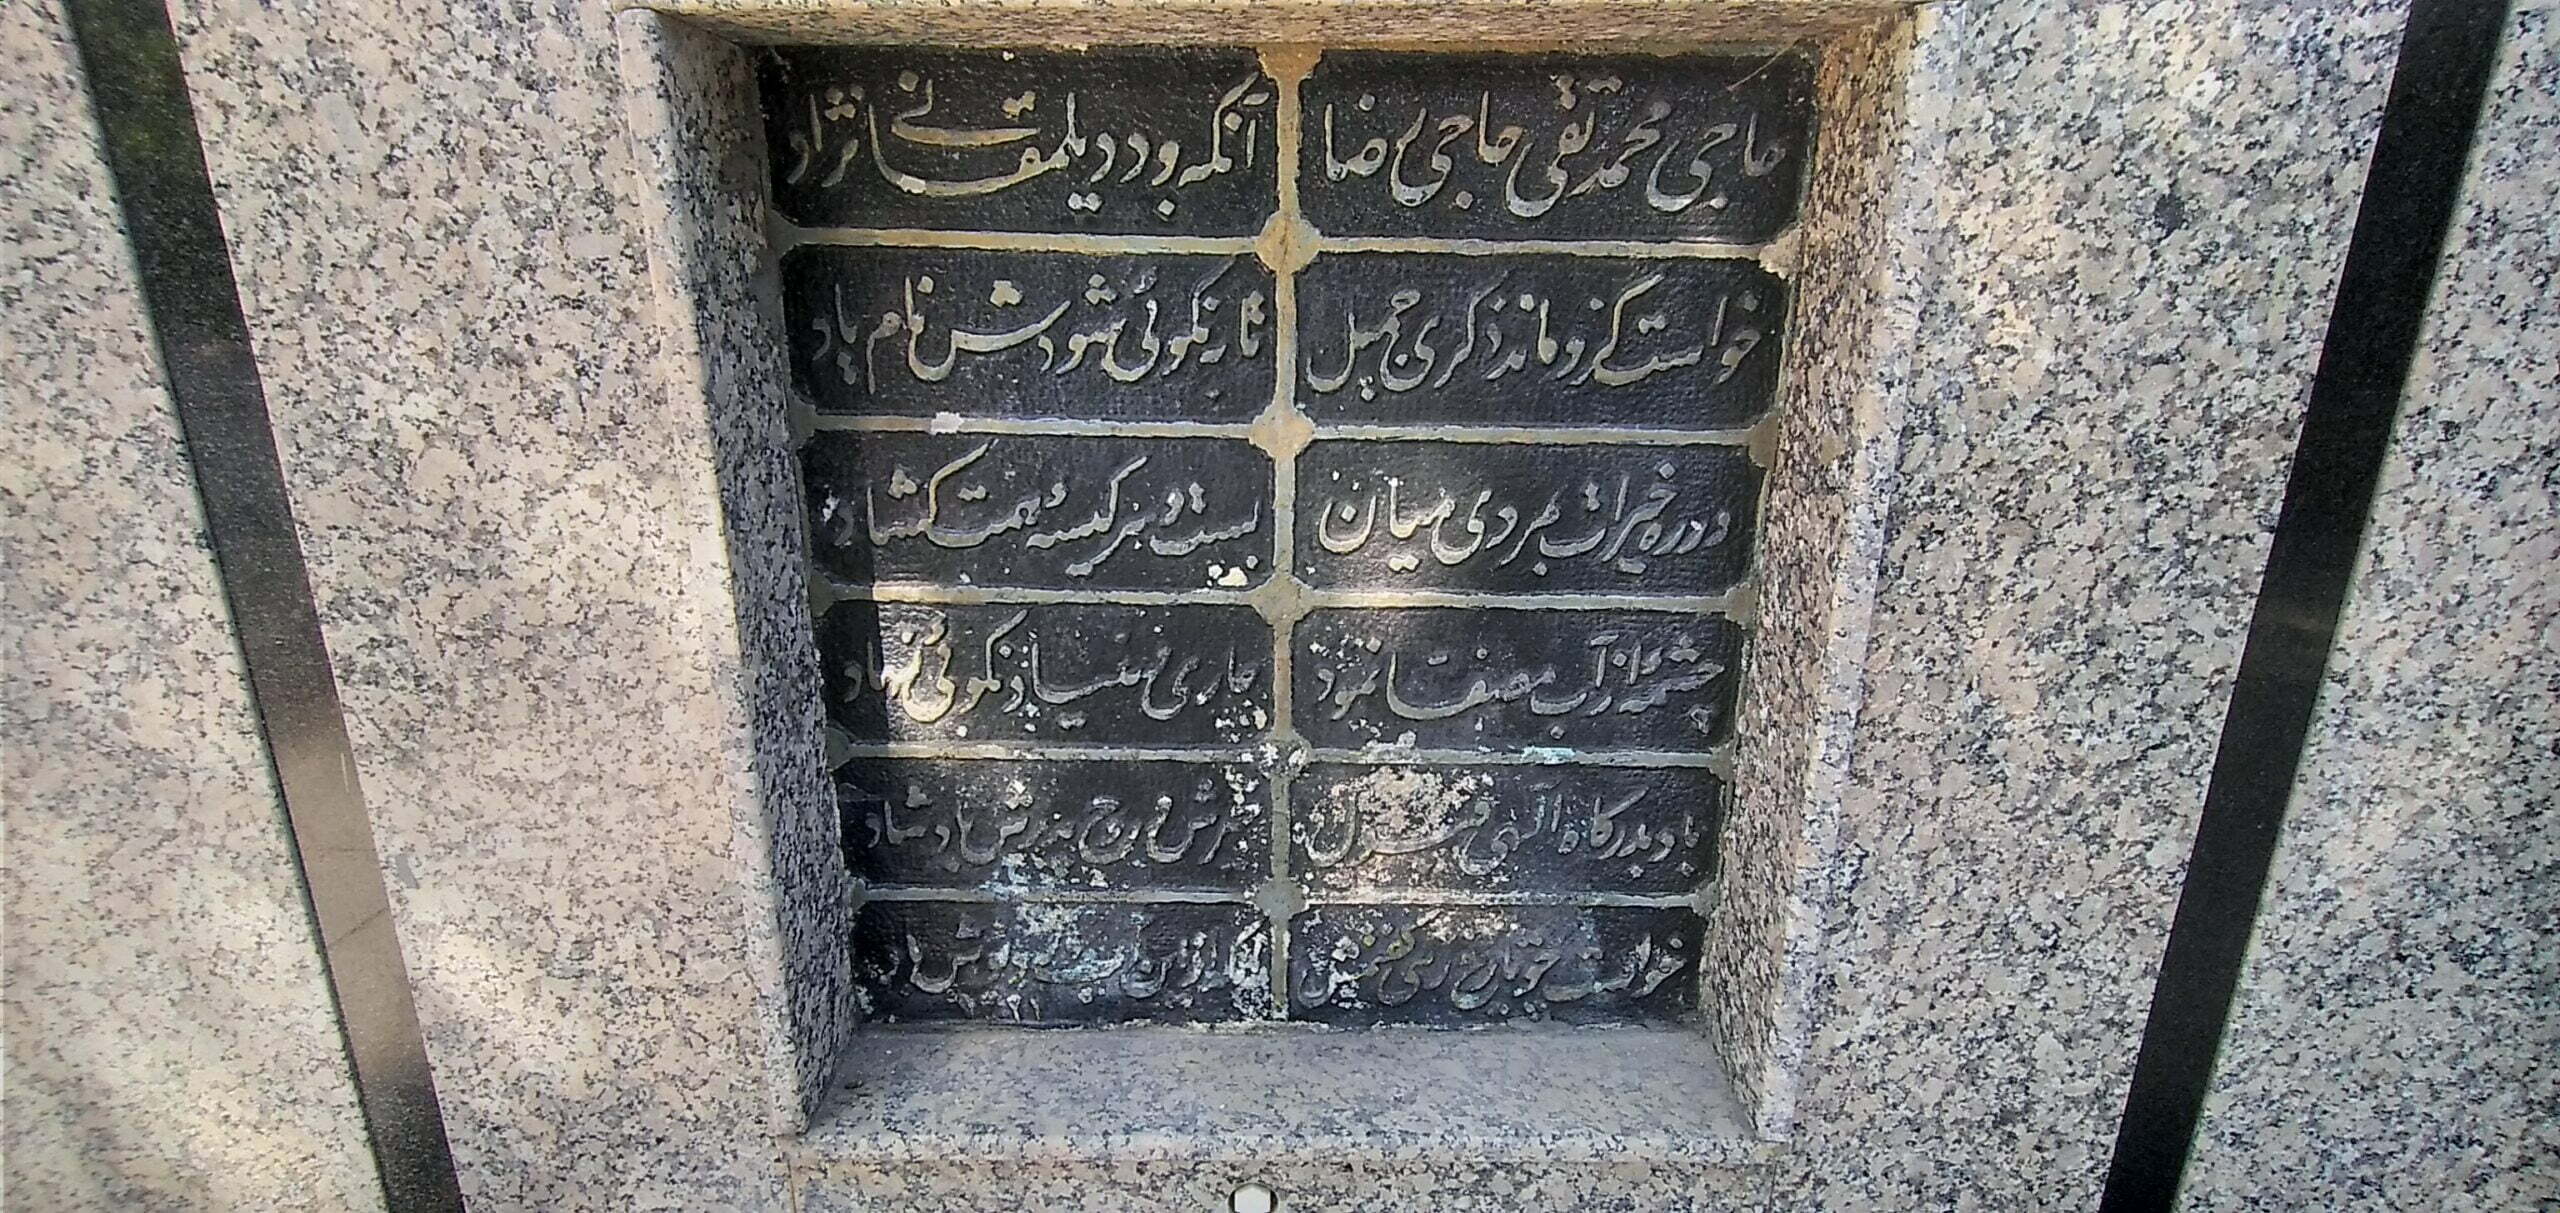 حاجی محمد تقی حاجی رضا آنکه بود دیلمقانی نژاد
خواست کزو ماند ذکری جمیل تا به نکوئی شودش نام یاد
در ره خیرات بمردی میان بست و هر کیسهٔ همت گشاد
چشمهٔ از آب مصفا نمود جاری و بنیاد نکوئی نهاد
باد بدرگاه آلهی قبول خیرش و روح پدرش باد شاد
خواست چو تاریخ رهی گفتمش آنکه ازین آب بنوشد